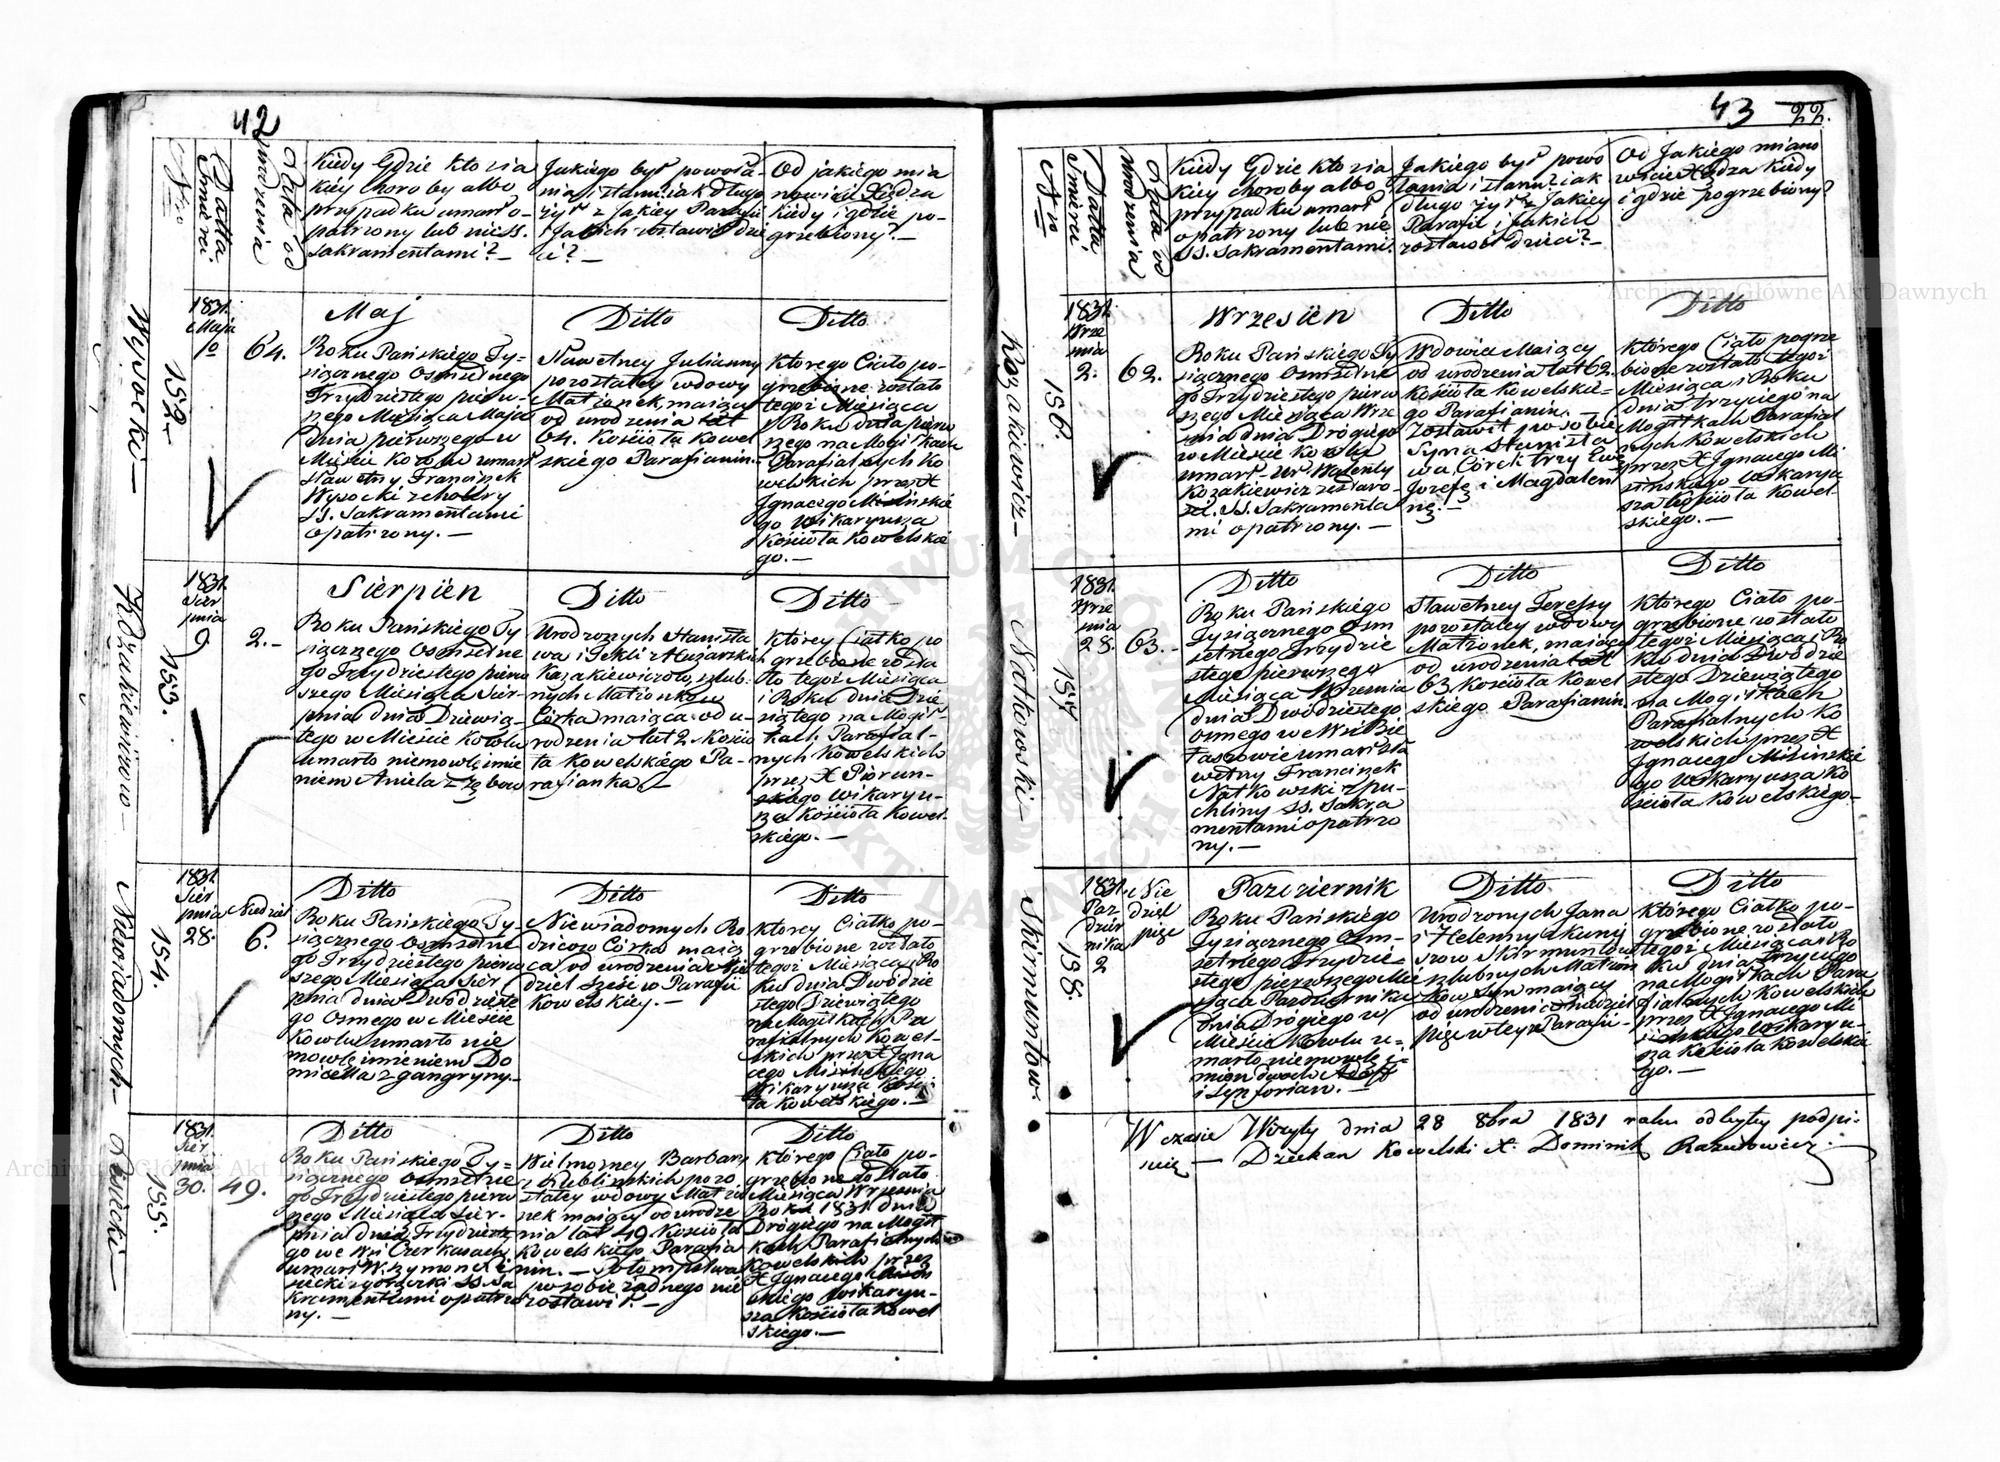 42
Nro
Datta Śmierci
Data od urodzenia
Kiedy Gdzie kto zia
kiey choroby albo
przypadku umarł o-
patrzony lub nie SS.
Sakramentami? —
Jakiego był powoła-
nia i stanu? iak długo
żył z Jakiey Parafii
i Jakich zostawił dzie
ci? —
Od jakiego mia
nowicie Xiędza
kiedy i gdzie po-
grzebiony? —
Wysocki —
152.
1831.
Maja
10
64.
Maj
Roku Pańskiego Ty=
siącznego Osmsetnego
Trzydziestego pierw-
szego Miesiąca Maja
dnia pierwszego w
Mieście Kowlu umarł
sławetny Franciszek
Wysocki z chóbry
SS. Sakramentami
opatrzony. —
Ditto
Sławetney Julianny
pozostałey wdowy
Małżonek, maiący
od urodzenia lat
64. Kościoła Kowel
skiego Parafianin. —
Ditto
Ktorego Ciało po-
grzebione zostało
tegoż Miesiąca
i Roku dnia pierw
szego na Mogiłkach
Parafialnych Ko
welskich przez X
Jgnacego Misińskie
go Wikaryusza
Kościoła Kowelskie
go. —
Kozakiewiczowa —
153.
1831.
Sier
pnia
9
2. —
Sierpień
Roku Pańskiego Ty
siącznego Osmsetne
go Trzydziestego pierw
szego Miesiąca Sier-
pnia dnia Dziewią-
tego w Mieście Kowlu
umarło niemowlę imie
niem Aniela z zębow
Ditto
Urodzonych Stanisła
wa i Tekli z Huzarskich
Kazakiewiczow, szlub-
nych Małżonkow
Córka maiąca od u-
rodzenia lat 2 Kościo
ła Kowelskiego Pa-
rafianka. —
Ditto
którey Ciałko po
grzebione zosta
ło tegoż Miesiąca
i Roku dnia Dzie
siątego na Mogił-
kach Parafial-
nych Kowelskich
przez X Piorun-
skiego Wikaryu-
sza Kościoła Kowel-
skiego. —
Niewiadomych —
154.
1831.
Sier
pnia
28.
Niedziel
6.
Ditto
Roku Pańskiego Ty-
siącznego Osmsetne
go Trzydziestego pierw
szego Miesiąca Sier
pnia dnia Dwódzieste
go Osmego w Mieście
Kowlu umarło nie
mowlę imieniem Do
micella z gangryny. —
Ditto
Niewiadomych Ro
dziców Córka maią
ca od urodzenia Nie
dziel Sześć w Parafii
Kowelskiey. —
Ditto
ktorey Ciałko po-
grzebione zostało
tegoż Miesiąca i Ro
ku dnia Dwódzie
stego Dziewiątego
na Mogiłkach Pa
rafialnych Kowel-
skich przez X Jgna
cego Misińskiego
Wikaryusza Kościo
ła Kowelskiego. —
155.
1831.
Sier
pnia
30.
49.
Ditto
Roku Pańskiego Ty=
siącznego Osmsetne
go Trzydziestego pierw
szego Miesiąca Sier-
pnia dnia Trzydzieste
go we Wsi Czerkasach
umarł W. Szymon
SS. Sa
kramentami opatrzo
ny. —
Ditto
Wielmożney Barbary
z Lublinskich pozo
stałey wdowy Małżo
nek maiący od urodze
nia lat 49 Kościoła
Kowelskiego Parafia
nin. — Potomstwa
po sobie żadnego nie
zostawił. —
Ditto
którego Ciało po-
grzebione zostało
Miesiąca Wrzesnia
Roku 1831 dnia
Drógiego na Mogił
kach Parafialnych
Kowelskich przez
X Jgnacego Misiń
skiego Wikaryu-
sza Kościoła Kowel
skiego. —
43
22.
Nro
Datta Śmierci.
Data od urodzenia
Kiedy Gdzie kto zia
kiey choroby albo
przypadku umarł
opatrzony lub nie
SS. Sakramentami.
Jakiego był powo
łania i stanu? iak
długo żył z Jakiey
Parafii i Jakich
zostawił dzieci? —
Od Jakiego miano
wicie Xiędza kiedy
i gdzie pogrzebiony?
Kozakiewicz —
156.
1831.
Wrze
snia
2.
62.
Wrzesień
Roku Pańskiego Ty
siącznego Osmsetne
go Trzydziestego pierw
szego Miesiąca Wrze
snia dnia Drógiego
w Mieście Kowlu
umarł Ur Walenty
Kozakiewicz ze staro-
ści. SS. Sakramenta
mi opatrzony. —
Ditto
Wdowiec Maiący
od urodzenia lat 62.
Kościoła Kowelskie-
go Parafianin. —
Zostawił po sobie
Syna Stanisła
wa, Córek trzy Ewę
Jozefę i Magdale
nę. —
Ditto
którego Ciało pogrze
bione zostało tegoż
Miesiąca i Roku
dnia Trzyciego na
Mogiłkach Parafial
nych Kowelskich
przez X Jgnacego Mi
sińskiego Wikaryu
sza Kościoła Kowel-
skiego. —
Natkowski —
157.
1831.
Wrze
snia
28.
63. —
Ditto
Roku Pańskiego
Tysiącznego Osm
setnego Trzydzie
stego pierwszego
Miesiąca Wrzesnia
dnia Dwódziestego
osmego we Wsi Bie
laszowie umarł Sła
wetny Franciszek
Natkowski z pu-
chliny SS. Sakra
mentami opatrzo
ny. —
Ditto
Sławetney Teressy
pozostałey wdowy
Małżonek, maiący
od urodzenia lat
63 Kościoła Kowel
skiego Parafianin
Ditto
którego Ciało po-
grzebione zostało
tegoż Miesiąca i Ro
ku dnia Dwódzie
stego Dziewiątego
na Mogiłkach
Parafialnych Ko
welskich przez X
Jgnacego Misinskie
go Wikaryusza Ko
ścioła Kowelskiego —
Skirmuntow —
158.
1831.
Paz
dzier
nika
2
Nie
dziel
pięć
Pazdziernik
Roku Pańskiego
Tysiącznego Osm-
setnego Trzydzie-
stego pierwszego Mie
siąca Pazdziernika
dnia Drógiego w
Mieście Kowlu u=
marło niemowlę i-
mion dwoch Adolf
i Synforian. —
Ditto
Urodzonych Jana
i Helenny
Skirmuntow
szlubnych Małżon
kow Syn maiący
od urodzenia Niedziel
pięć w teyże Parafii —
Ditto
którego Ciałko po-
grzebione zostało
tegoż Miesiąca i Ro
ku dnia Trzyciego
na Mogiłkach Para
fialnych Kowelskich
przez X Jgnacego Mi
sinskiego Wikaryu-
sza Kościoła Kowelskie
go. —
W czasie Wizyty dnia 28 8bra 1831 roku odbytey podpi-
suię — Dziekan Kowelski X. Dominik Razutowicz. —
Archiwum Główne Akt Dawnych
Archiwum Główne Akt Dawnych
ARCHIWUM GŁÓWNE AKT DAWNYCH